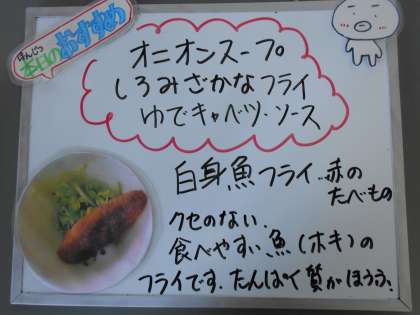 ほんじつ
本日のおすすめ
オニオンスープ
しろみざかなフライ
ゆでキャベツ・ソース
白身魚フライ…赤の
たべもの
クセのない、
食べやすい魚(ホキ)の
フライです。たんぱく質がほうふ、